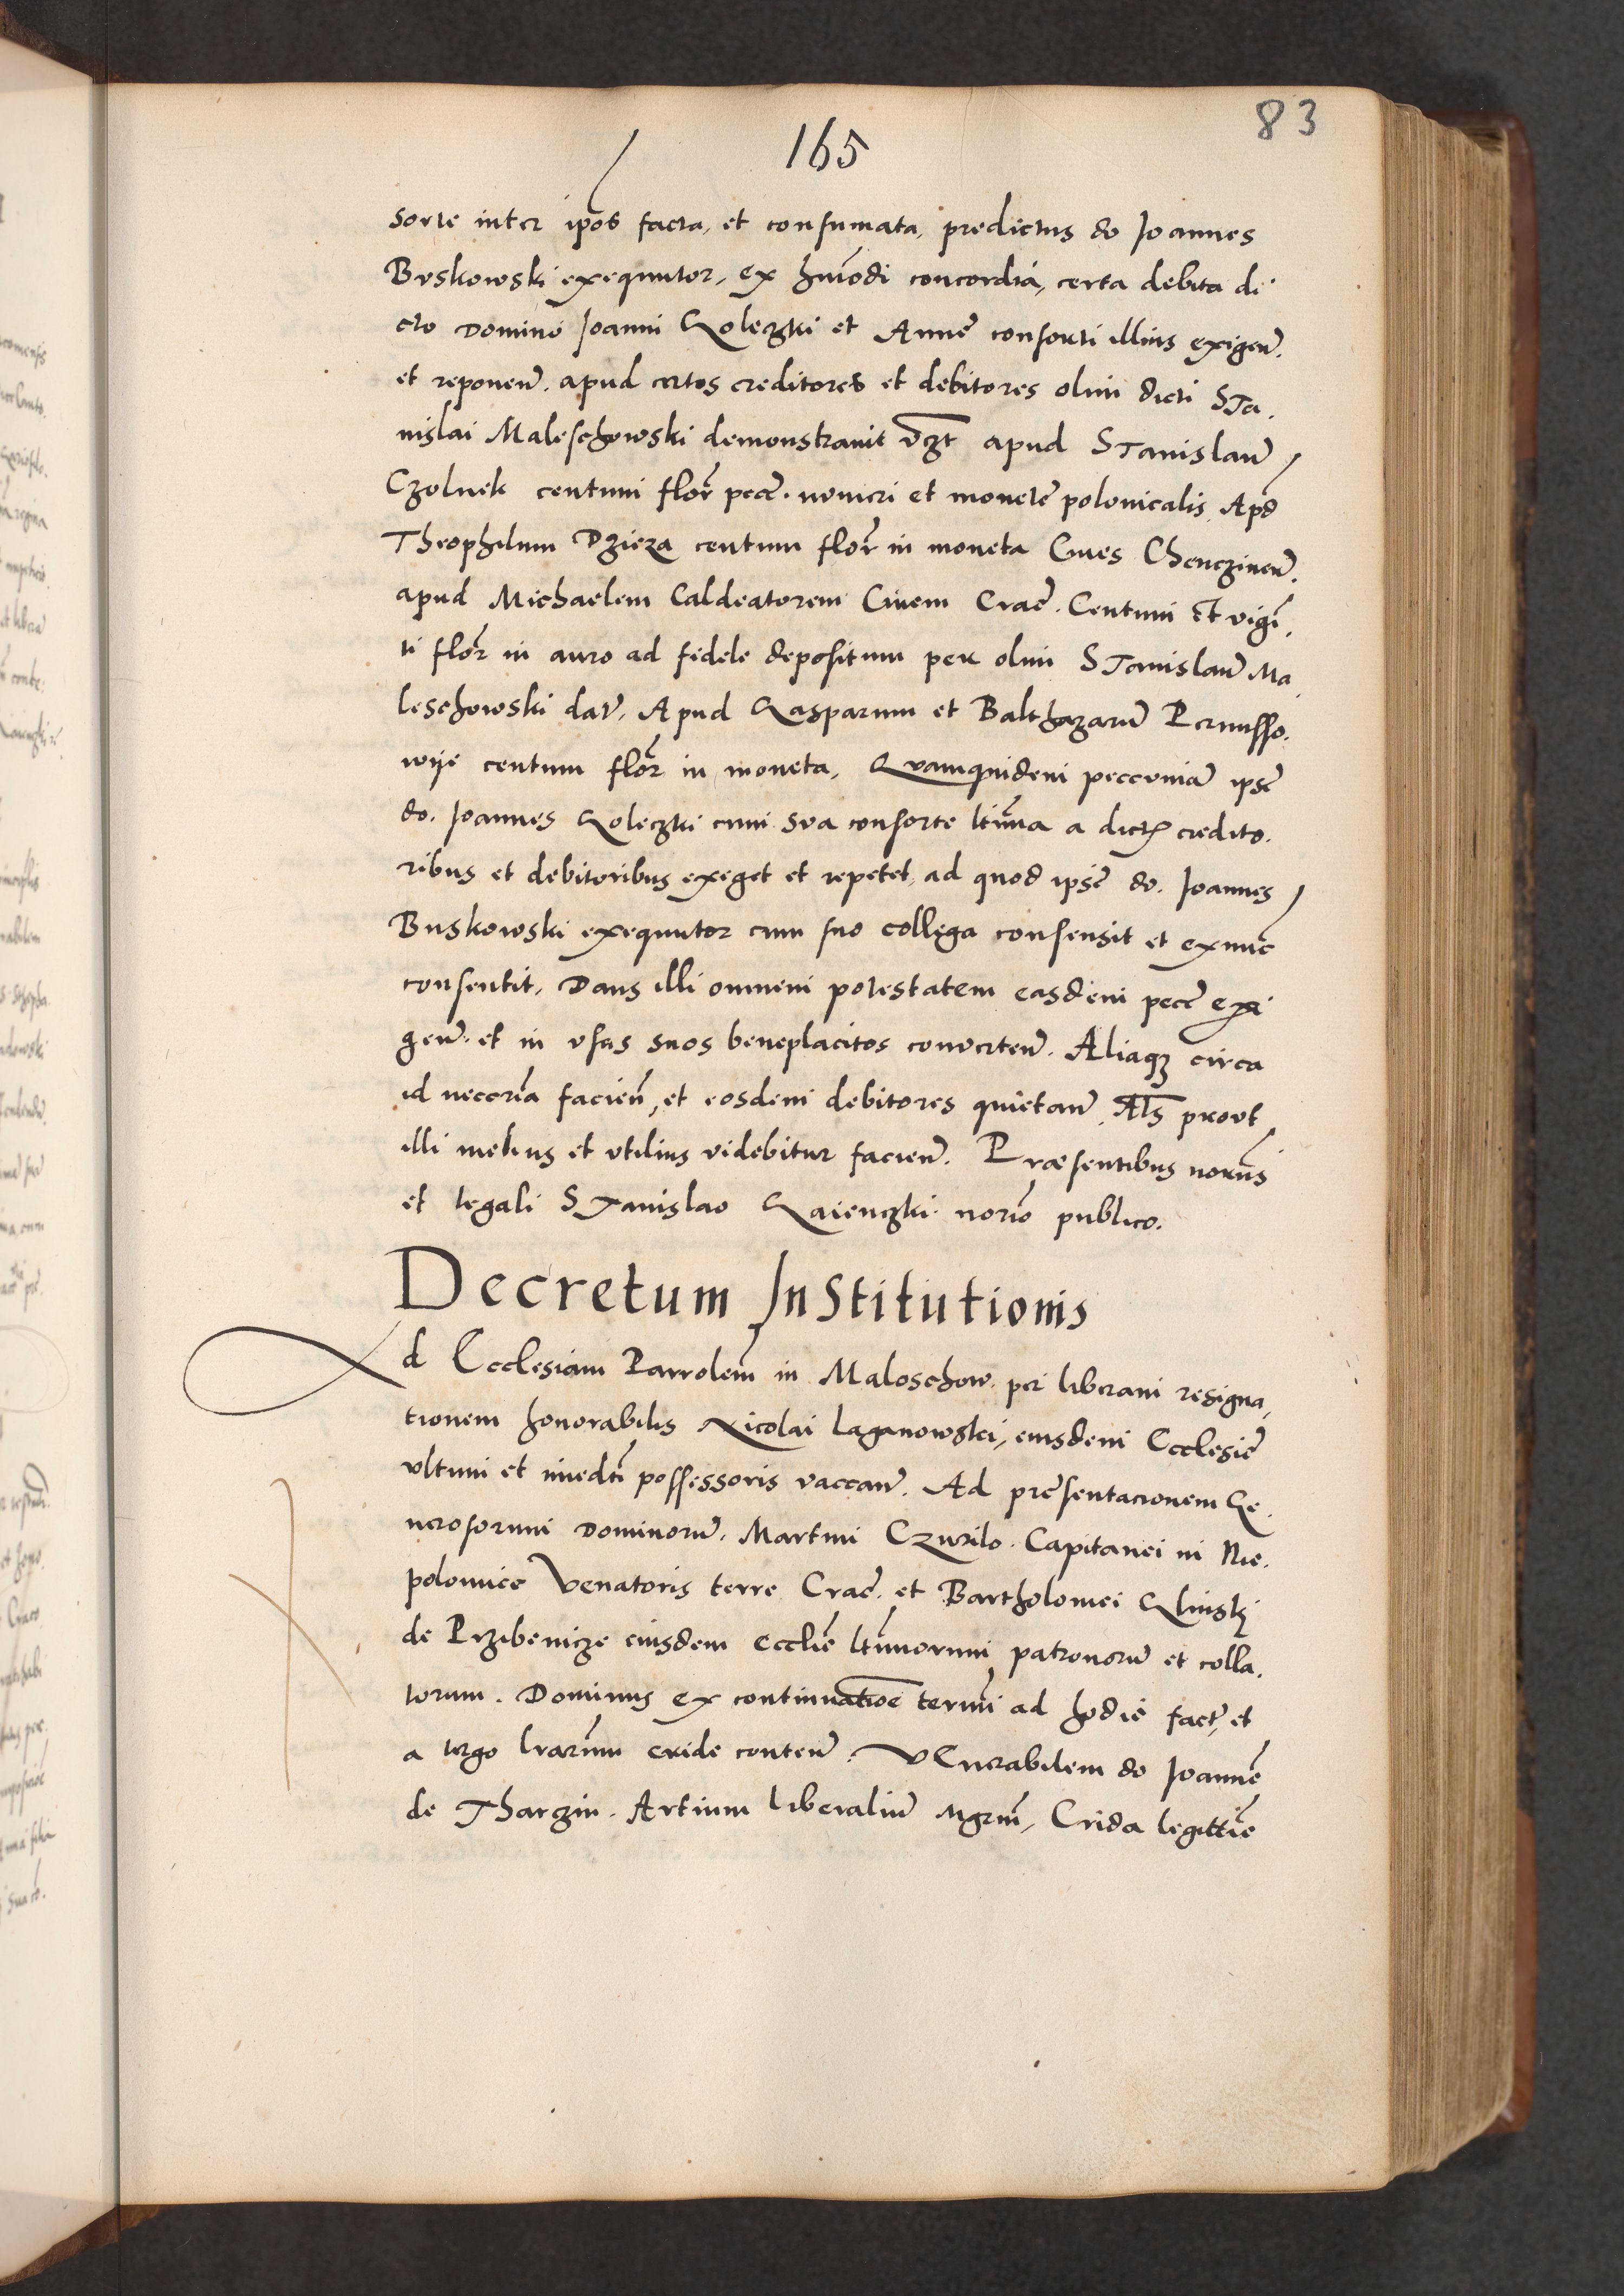 83
165
sorte inter ipōs facta, et consumata, predictus do Joannes
Buskowski exequutor, ex hmōdi concordia, certa debita di
cto domino Joanni Goleczki et Anne consorti illius exigeñ.
et reponeñ. apud certos creditores et debitores olim dicti Sta.
nislai Maleschowski demonstrauit vƺt apud Stanislaū
Czolnek centum flor̄ pecc̄. numeri et monete polonicalis, Apd
Theophilum Dzieza centum flor̄ in moneta Ciues Chenczineñ.
apud Michaelem Caldeatorem Ciuem Crac̄. Centum Et vigī.
ti flor̄ in auro ad fidele depositum per olim Stanislaū Ma
leschowski dat̄. Apud Gasparum et Balthazarū Pernusso.
wije centum flor̄ in moneta, Quamquidem peccuniā ipse
do. Joannes Goleczki cum sua consorte ltīma a dictis credito.
ribus et debitoribus exeget et repetet, ad quod ipse do. Joannes
Buskowski exequutor cum suo collega consensit et exnunc
consentit, Dans illi omnem potestatem easdem pecc̄ exi
geñ. et in vsus suos beneplacitos conuerteñ. Aliaqȝ circa
id neccr̄ia facieñ, et eosdem debitores quietañ, Als̄ prout
illi melius et vtilius videbitur facieñ. Præsentibus
et legali Stanislao Gaienczki nor̄io publico.
Decretum Institutionis
Ad Ecclesiam Parrolem̄ in Maloschow. per liberam resigna,
tionem honorabilis Nicolai Laganowski, eiusdem Ecclesie
vltimi et immedti possessoris vaccañ. Ad presentacionem Ge.
nerosorum Dominorū. Martini Czurilo. Capitanei in Nie.
polomice Venatoris terre Crac̄. et Bartholomei Glinskj
de Przibenicze eiusdem ecclīe ltīmorum patronorū et colla.
torum. Dominus ex continuatioē termī ad hodie fact̄, et
a tergo lrarum cride conteñ. VEnerabilem do Joannē
de Tharczin. Artium liberaliū Mgrm̄, Crida legittīe